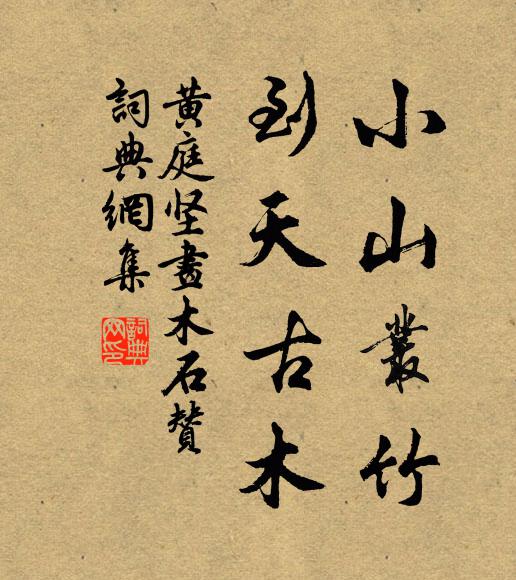 小山叢竹
到天古木
黄庭坚畫木石贊
詞典網集
詞典
网印